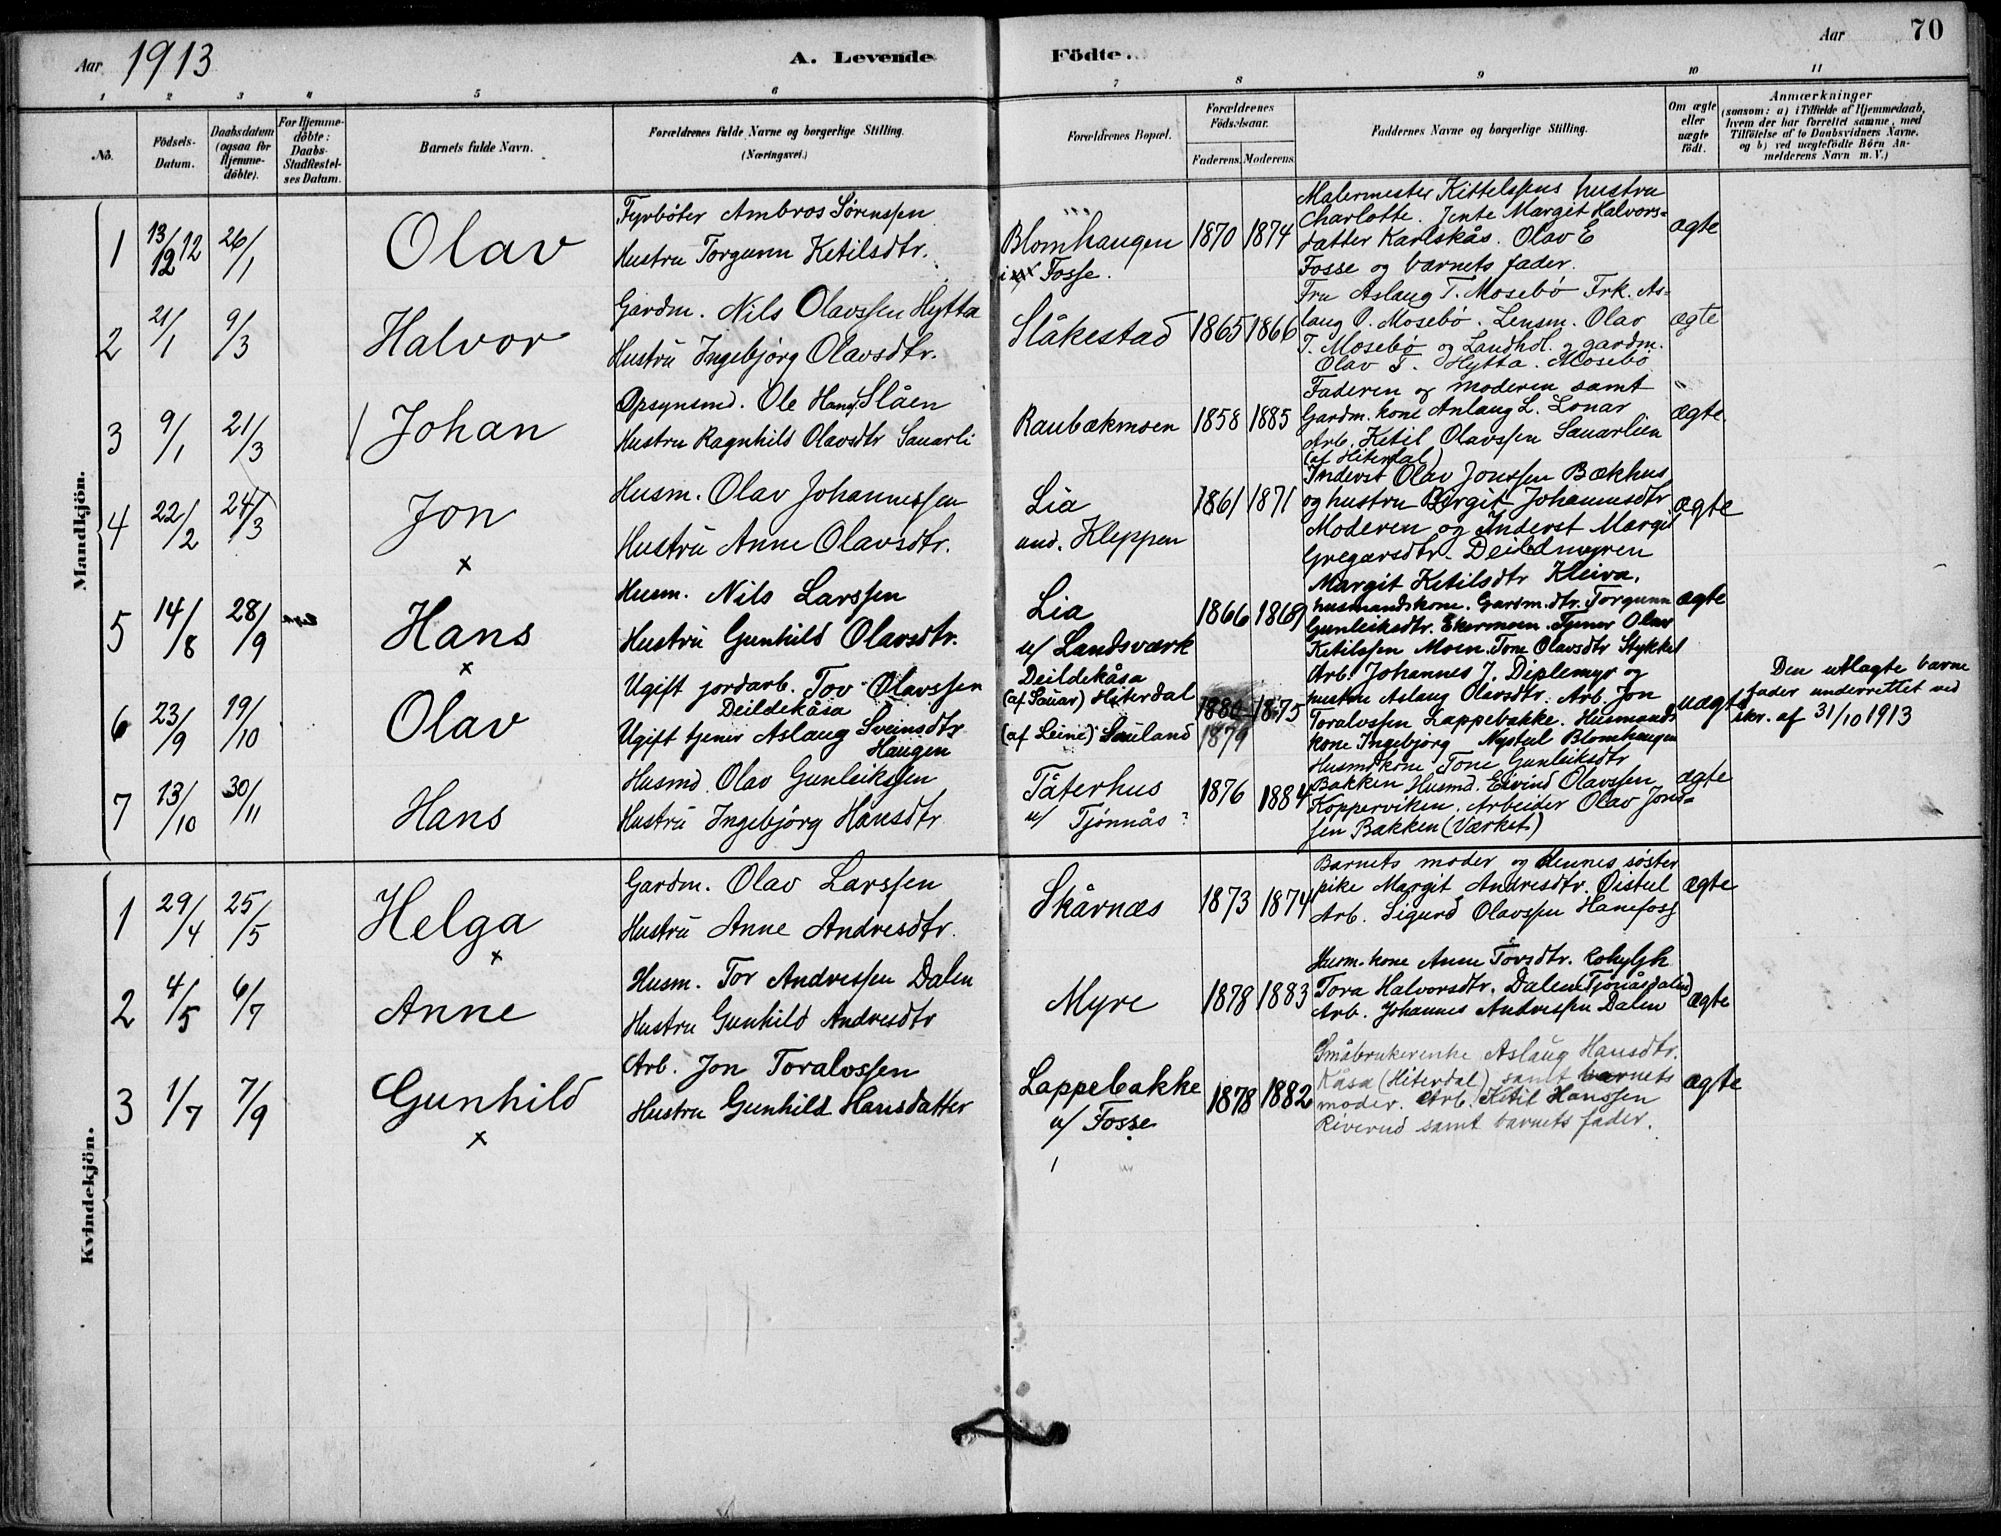 Aar 1913
A. Levende Födte.
Aar 70
1 2 3 4 5 6 7 8 9 10 11
No.
Födsels-Datum.
Daabsdatum (ogsaa for Hjemme-döbte).
For Hjemme-döbte: Daabs-Stadfæstel-ses Datum.
Barnets fulde Navn.
Forældrenes fulde Navne og borgerlige Stilling. (Næringsvei.)
Forældrenes Bopæl.
Forældrenes Födselsaar.
Faderens. Moderens.
Faddernes Navne og borgerlige Stilling.
Om ægte eller uægte födt.
Anmærkninger
(saasom: a) i Tilfælde af Hjemmedaab, hvem der har forrettet samme, med Tilföielse af to Daabsvidners Navne. og b) ved uægtefödte Börn An-melderens Navn m. V.)
Mandkjön.
1 13/12 12 26/1 Olav
Fyrbøter Ambros Sørenssen
Hustru Torgunn Ketilsdtr.
Blomhaugen
i Fosse.
1870 1874
Malermester Kittelssens hustru
Charlotte. Jente Margit Halvors-
datter Karlskås. Olav E
Fosse og barnets fader.
ægte
2 21/1 9/3 Halvor
Gardm. Nils Olavssen Hytta
Hustru Ingebjørg Olavsdtr.
Slåkestad
1865 1866
Fru Aslaug T. Mosebø Frk. As-
laug O. Mosebø. Lensm. Olav
T. Mosebø og Landhdl. og gardm.
Olav T. Hytta. Mosebø
ægte
3 9/1 21/3 Johan
Opsynsmd. Ole Hans. Slåen
Hustru Ragnhild Olavsdtr Sauarli
Raubækmoen
1858 1885
Faderen og moderen samt
Gardm. kone Anlaug L. Lonar
Arb. Ketil Olavssen Sauarlien
(af Hiterdal)
ægte.
4 22/2 24/3 Jon
x
Husm. Olav Johannessen
Hustru Anne Olavsdtr.
Lia
und. Kleppen
1861 1871
Inderst Olav Jonssen Bækhus
og hustru Birgit Johannesdtr
Moderen og Inderst Margit
Gregarsdtr. Deildmyren
ægte
5 14/8 28/9 Hans
x
Husm. Nils Larssen
Hustru Gunhild Olavsdtr.
Lia
u/ Landsværk
1866 1869
Margit Ketilsdtr Kleiva,
husmandskone. Gardm.dtr. Torgunn
Gunleiksdtr. Ekermoen. Tjener Olav
Ketilssen Moen. Tone Olavsdtr Stykket
ægte
6 23/9 19/10 Olav
Ugift jordarb. Tov Olavssen
Deildekåsa
Ugift tjener Aslaug Sveinsdtr
Haugen
Deildekåsa
(af Sauar) Hiterdal
(af Leine) Sauland
1880 1875
1879
Arb. Johannes J. Diplemyr og
hustru Aslaug Olavsdtr. Arb. Jon
Toralvssen Lappebakke. Husmands
kone Ingebjørg Nystul Blomhaugen
uægte
Den utlagte barne
fader underrettet ved
skr. af 31/10 1913
7 13/10 30/11 Hans
Husmd. Olav Gunleiksen
Hustru Ingebjørg Hansdtr
Tåterhus
u/ Tjønnås
1876 1884
Husmdkone Tone Gunleiksdtr
Bakken Husmd. Eivind Olavssen
Kopperviken. Arbeider Olav Jons-
sen Bakken (Værket)
ægte
Kvindekjön.
1 29/4 25/5 Helga
x
Gardm. Olav Larssen
Hustru Anne Andresdtr.
Skårnæs
1873 1874
Barnets moder og hennes søster
pike Margit Andresdtr. Øistul
Arb. Sigurd Olavssen Hanefoss
ægte
2 4/5 6/7 Anne
Husm. Tor Andressen Dalen
Hustru Gunhild Andresdtr
Myre
1878 1883
Husm. kone Anne Torsdtr.
Tora Halvorsdtr. Dalen (Tjønåsdalen)
Arb. Johannes Andressen Dalen
ægte
3 1/7 7/9 Gunhild
x
Arb. Jon Toralvssen
Hustru Gunhild Hansdatter
Lappebakke
u/ Fosse
1878 1882
Småbrukerenke Aslaug Hansdtr.
Kåsa (Hiterdal) samt barnets
moder. Arb. Ketil Hanssen
Riverud samt barnets fader.
ægte